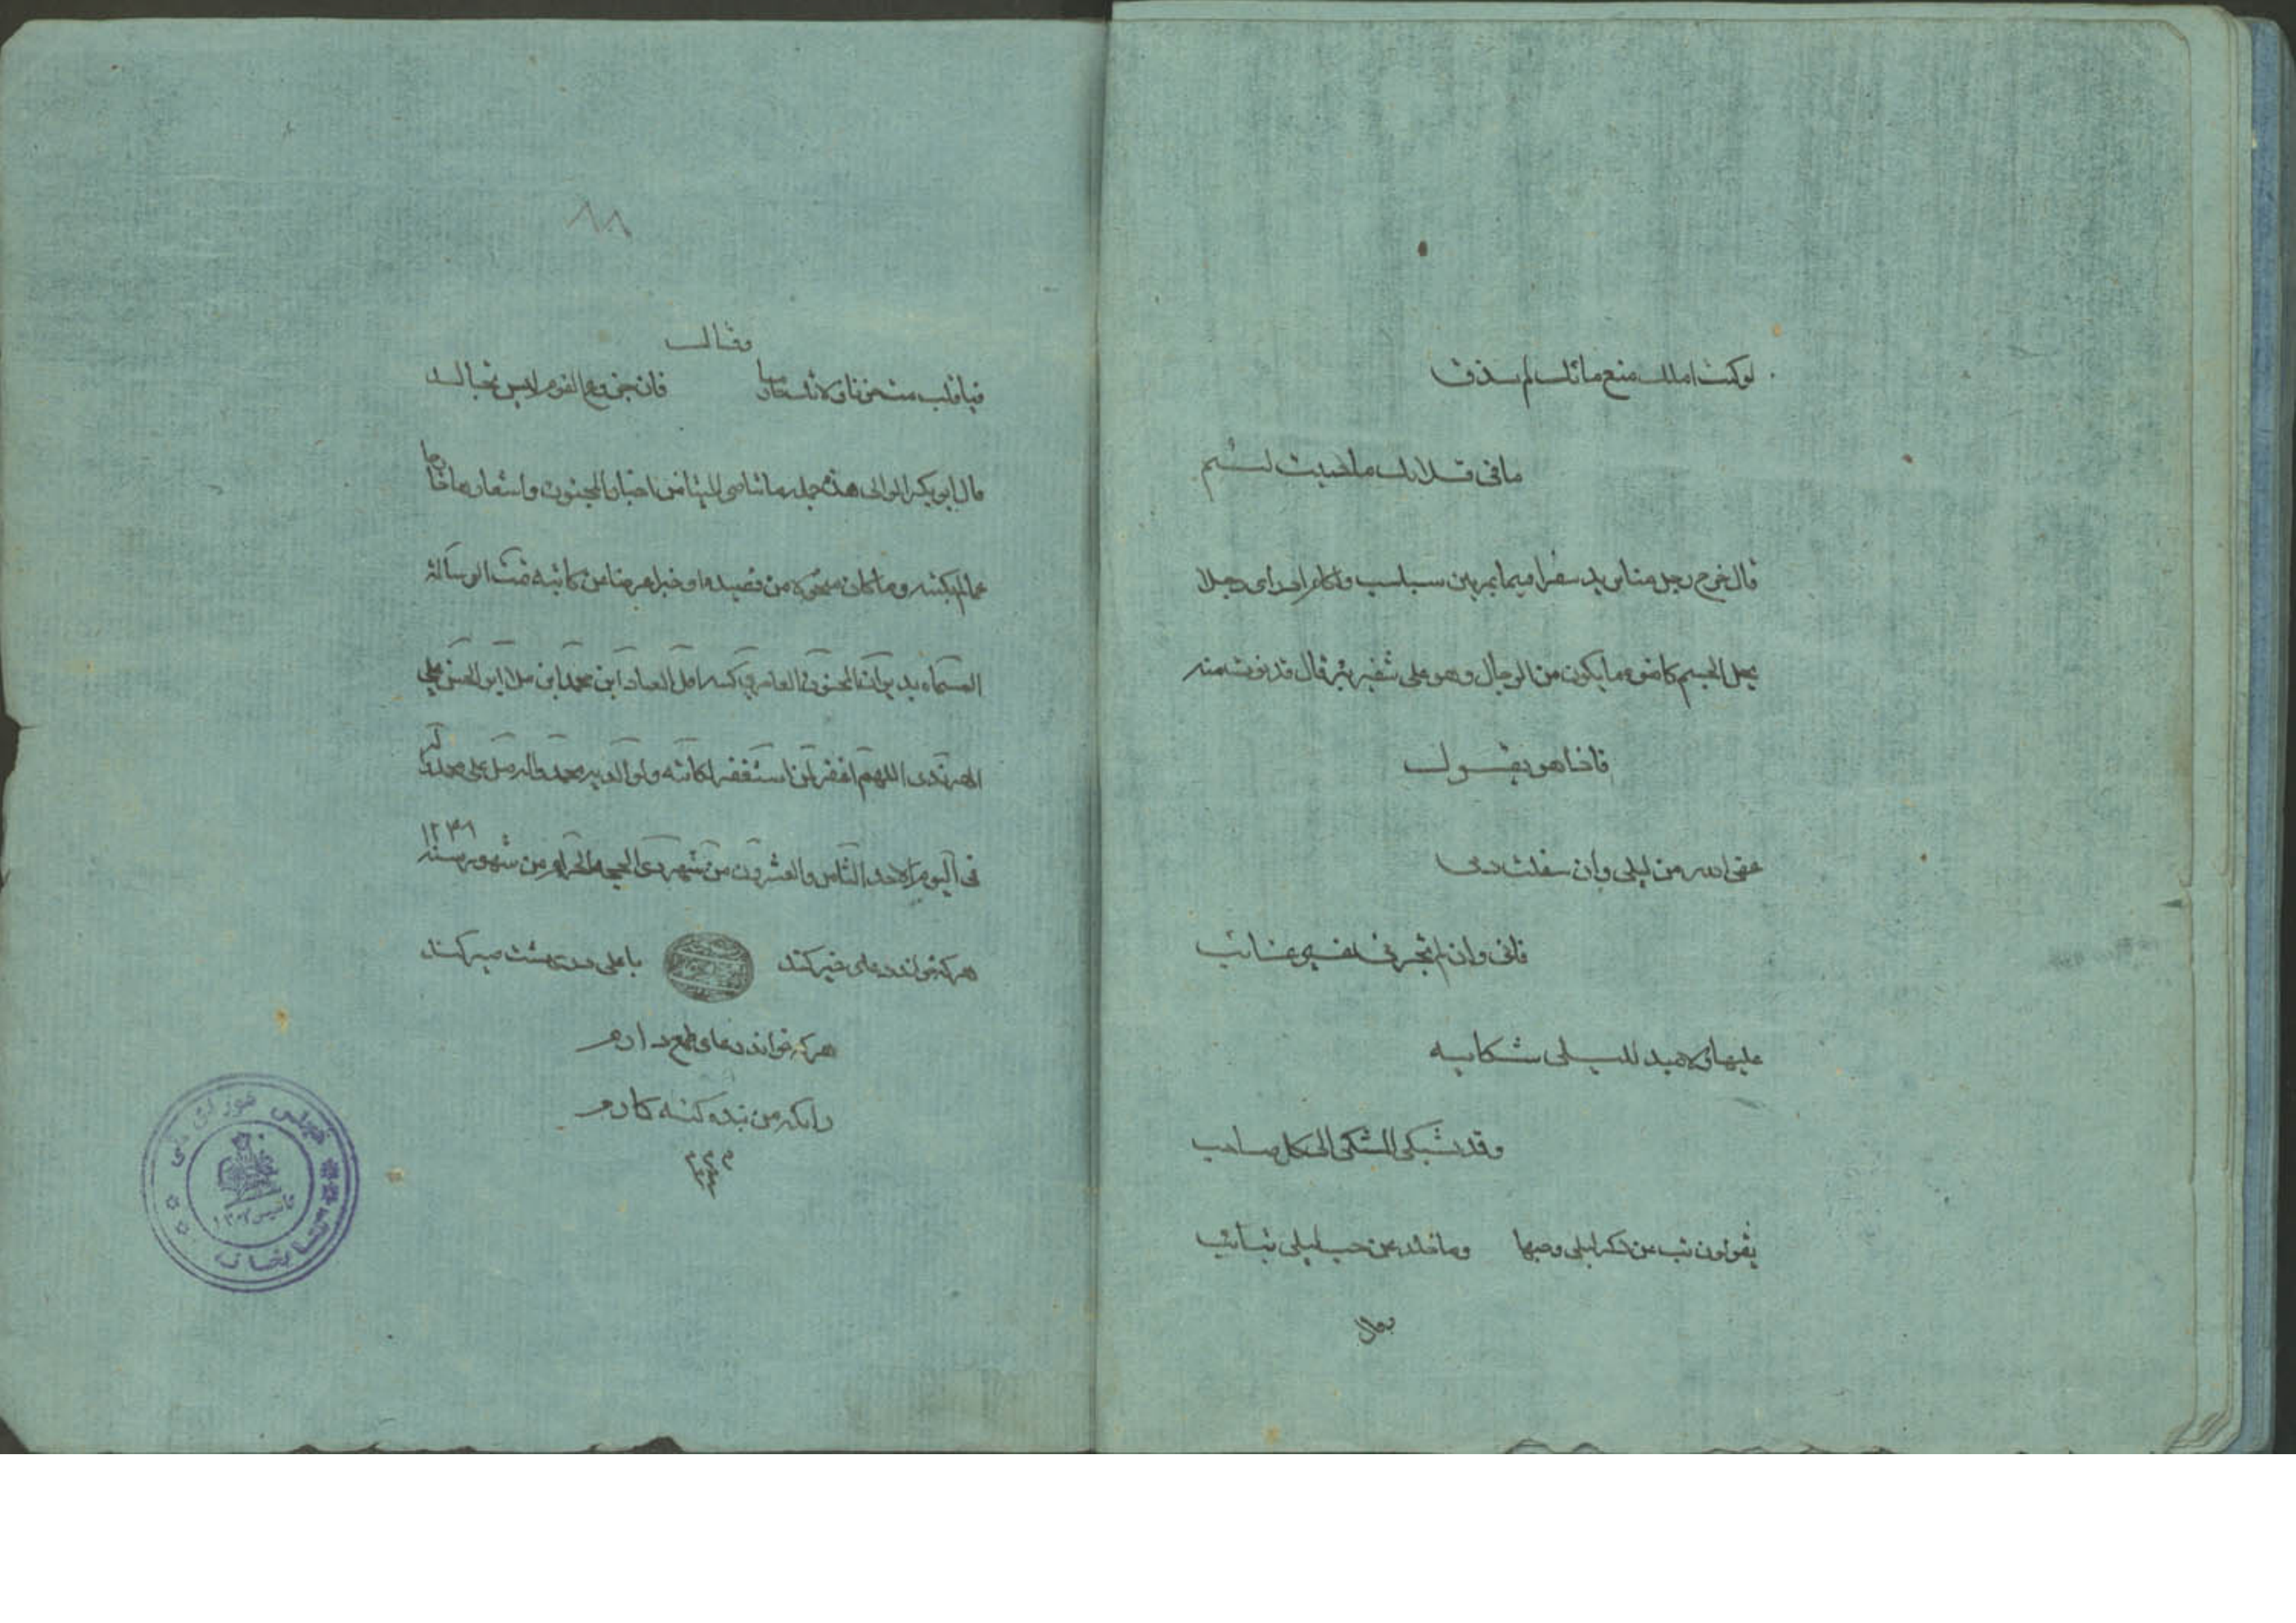 لو كنت املك منع مائك لم يذق
ما فى قلاتك ما حييت لئيم
قال خرج رجل منا يريد سفرا فيما يمر بين سباسب واكام اذ راى رجلا
الجسم كاضوء ما يكون من الرجال وهو على شفير بئر قال فدنوت منه
فاذا هو يقول
عفى الله من ليلى وان سفكت دمى
فانى وان لم تجزنى غير عائب
عليها ولا مبد لليلى شكايه
وقد تشكى المشكى الى كل صاحب
يقولون تب عن ذكر ليلى وحبها وما خلدى عن حب ليلى بتائب
وقال
٨٨
وقال
فيا قلب مت حزنا ولا تك جازعا فان جزوع القوم ليس بخالد
قال ابو بكر الوالبى هذه جملة ما تناهى الينا من اخبار المجنون واشعاره
مما لم يكتبه وما كان من قصيدة او خبر تمت الرسالة
المسماة بديوان المجنون العامرى كتبه اقل العباد ابن محمد ابن ملا ابو الحسن على
اللهم اغفر لمن استغفر لكاتبه ولوالديه بمحمد واله صل على محمد وآله
فى اليوم الاحد الثامن والعشرون من شهر ذى الحجة الحرام من شهور سنه ١٢٣٨
هر كه خواند دعاى خير كند يا على
هر كه خواند دعا طمع دارم
زانكه من بنده گنه كارم
تاسيس ١٣٠٢